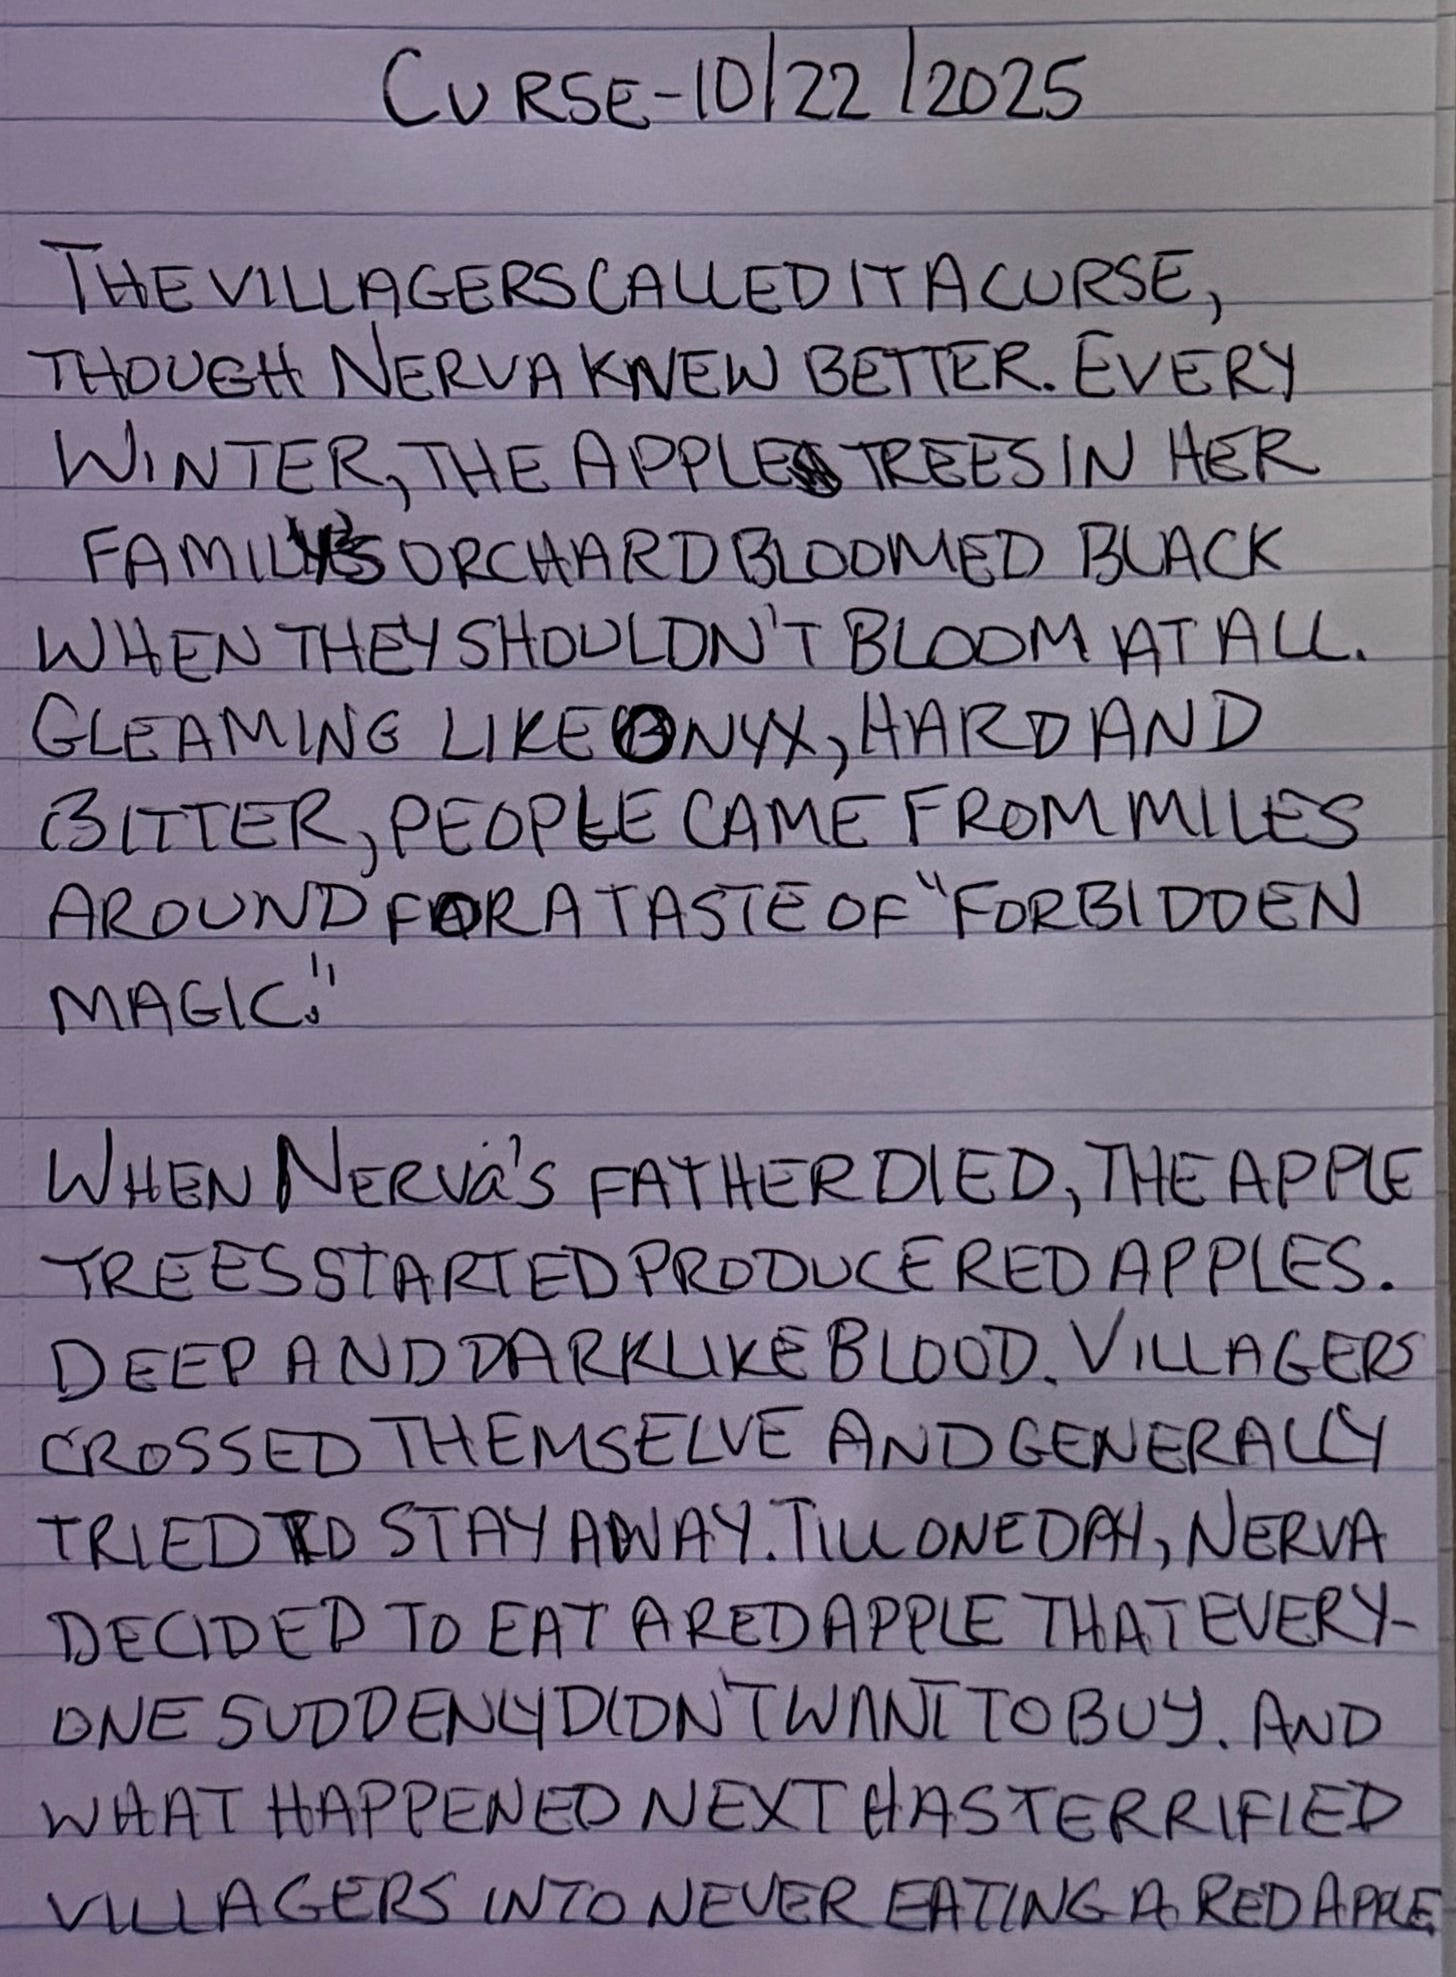 CURSE-10/22/2025
THE VILLAGERS CALLED IT A CURSE,
THOUGH NERVA KNEW BETTER. EVERY
WINTER, THE APPLE TREES IN HER
FAMILY'S ORCHARD BLOOMED BLACK
WHEN THEY SHOULDN'T BLOOM AT ALL.
GLEAMING LIKE ONYX, HARD AND
BITTER, PEOPLE CAME FROM MILES
AROUND FOR A TASTE OF "FORBIDDEN
MAGIC."
WHEN NERVA'S FATHER DIED, THE APPLE
TREES STARTED PRODUCE RED APPLES.
DEEP AND DARK LIKE BLOOD. VILLAGERS
CROSSED THEMSELVE AND GENERALLY
TRIED TO STAY AWAY. TILL ONE DAY, NERVA
DECIDED TO EAT A RED APPLE THAT EVERY-
ONE SUDDENLY DIDN'T WANT TO BUY. AND
WHAT HAPPENED NEXT HAS TERRIFIED
VILLAGERS INTO NEVER EATING A RED APPLE